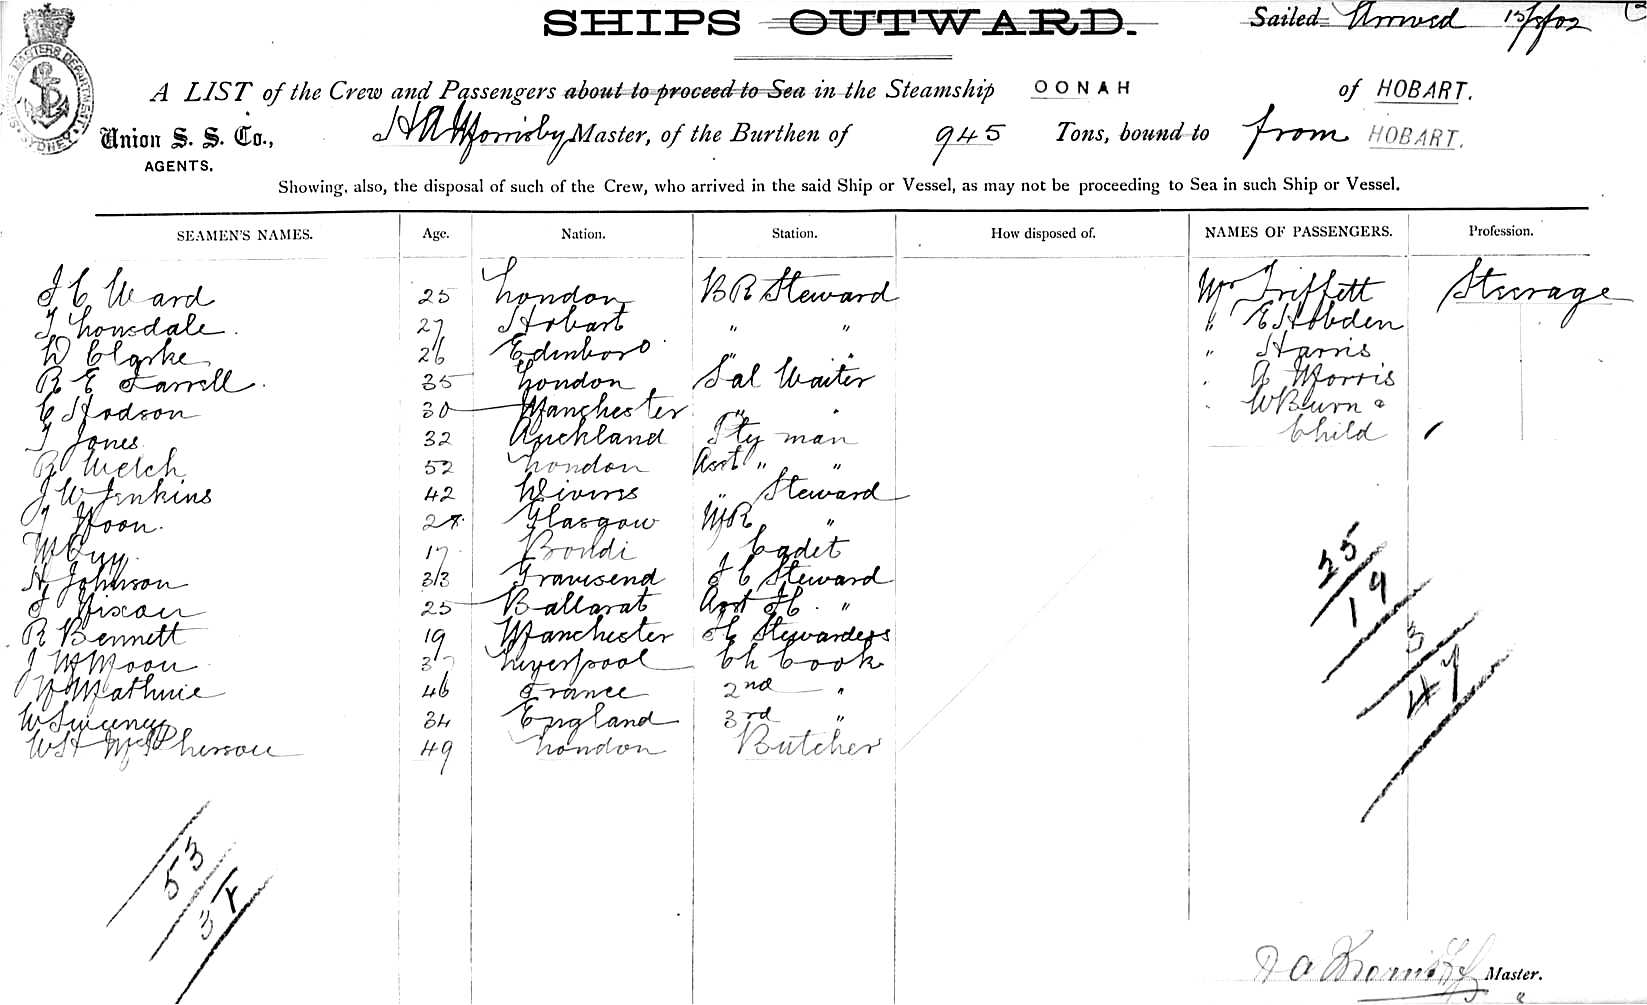 SHIPS OUTWARD. Sailed Arrived 15/8/02
A LIST of the Crew and Passengers about to proceed to Sea in the Steamship OONAH of HOBART.
Union S. S. Co., H A Morrisby Master, of the Burthen of 945 Tons, bound to from HOBART.
AGENTS.
Showing, also, the disposal of such of the Crew, who arrived in the said Ship or Vessel, as may not be proceeding to Sea in such Ship or Vessel.
SEAMEN'S NAMES. Age. Nation. Station. How disposed of. NAMES OF PASSENGERS. Profession.
J C Ward 25 London B R Steward Mr Triffett Steerage
T Lonsdale 27 Hobart " " " E Hobden
W Clarke 26 Edinboro " " " Harris
R E Farrell 35 London Sal Waiter A Morris
C Hodson 30 Manchester " " W Burn &
T Jones 32 Auckland Pty man Child
R Welch 52 London Asst " "
J W Jenkins 42 " Steward
T Hoon 27 Glasgow M R "
M Guy 17 Bondi Cadet
H Johnson 33 Gravesend F C Steward
F Hixon 25 Ballarat Asst F C "
R Bennett 19 Manchester F C Stewardess
J W Moon 37 Liverpool Ch Cook
46 France 2nd "
W Sweeney 34 England 3rd "
W H McPherson 49 London Butcher
25
19
3
47
53
37
H A Morrisby Master.